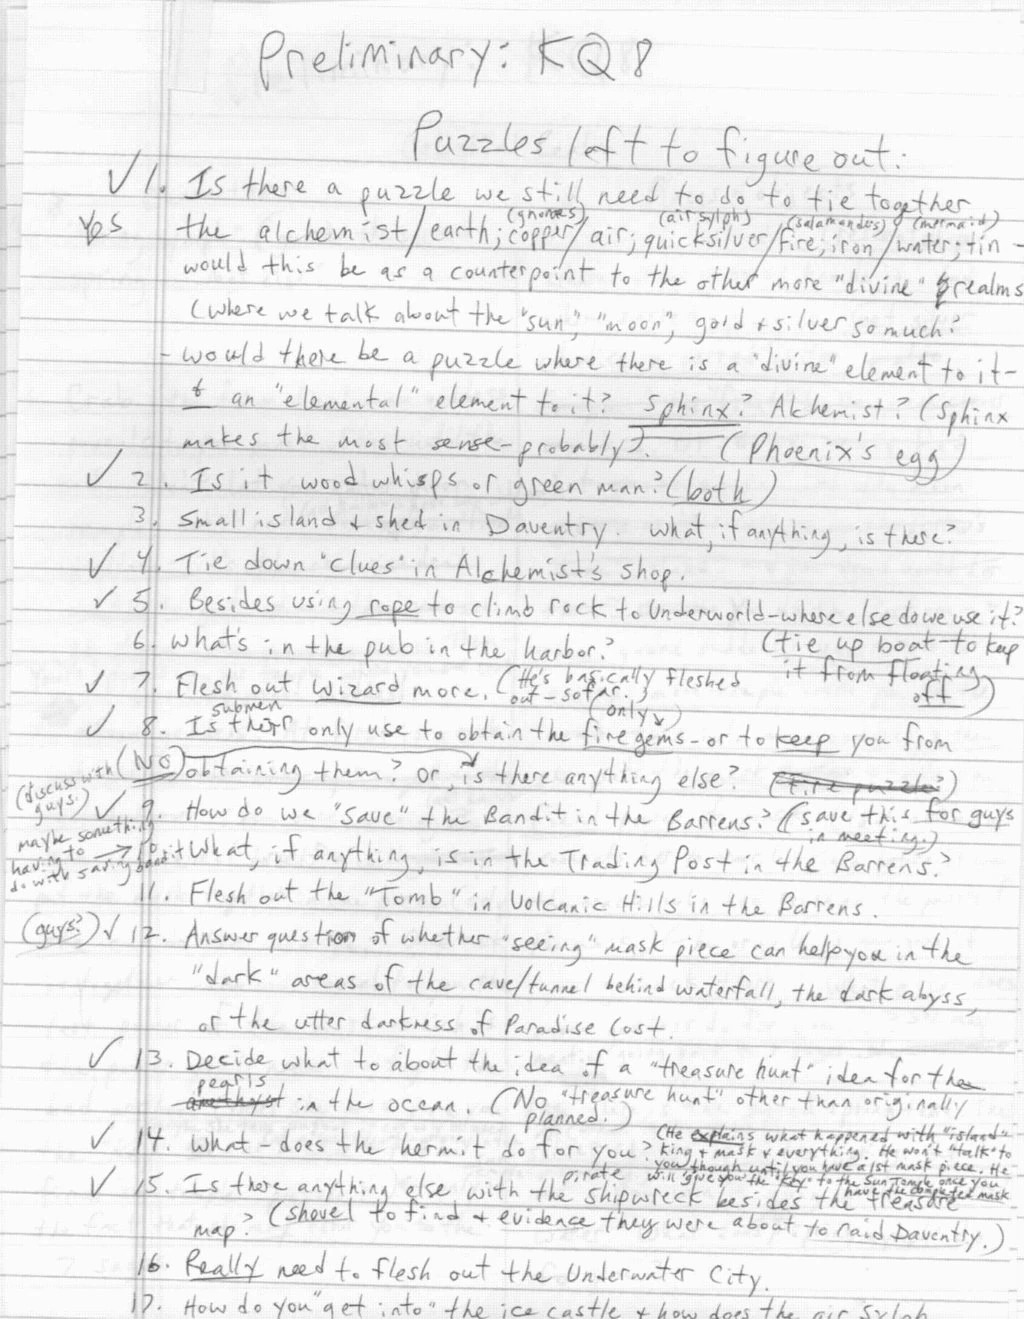 Preliminary: KQ8
Puzzles left to figure out:
✓ 1. Is there a puzzle we still need to do to tie together
Yes the alchemist/earth; copper (gnomes)/air; quicksilver (air sylph)/fire; iron (salamanders)/water; tin (mermaid) -
would this be as a counterpoint to the other more "divine" realms
(where we talk about the "sun", "moon", gold + silver so much?
- would there be a puzzle where there is a "divine" element to it -
+ an "elemental" element to it? Sphinx? Alchemist? (Sphinx
makes the most sense - probably). (Phoenix's egg)
✓ 2. Is it wood whisps or green man? (both)
3. Small island + shed in Daventry. What, if anything, is there?
✓ 4. Tie down "clues" in Alchemist's shop.
✓ 5. Besides using rope to climb rock to Underworld - where else do we use it?
6. What's in the pub in the harbor? (tie up boat - to keep
it from floating off)
✓ 7. Flesh out wizard more. (He's basically fleshed
out - so far.)
✓ 8. Is submen their only use to obtain the fire gems - or to (only) keep you from
(No) obtaining them? or, is there anything else? (fire puzzle?)
(discuss with guys.) ✓ 9. How do we "save" the Bandit in the Barrens? (save this for guys
in meeting.)
maybe something having to do with saving bandit → 10. What, if anything, is in the Trading Post in the Barrens?
11. Flesh out the "Tomb" in Volcanic Hills in the Barrens.
(guys?) ✓ 12. Answer question of whether "seeing" mask piece can help you in the
"dark" areas of the cave/tunnel behind waterfall, the dark abyss,
or the utter darkness of Paradise Lost.
✓ 13. Decide what to about the idea of a "treasure hunt" idea for the
amethyst pearls in the ocean. (No "treasure hunt" other than originally
planned.)
✓ 14. What - does the hermit do for you? (He explains what happened with "island"
king + mask + everything. He won't "talk" to
you though until you have a 1st mask piece. He
will give you the "key" to the Sun Temple once you
have the completed mask
✓ 15. Is there anything else with the pirate shipwreck besides the treasure
map? (shovel to find + evidence they were about to raid Daventry.)
16. Really need to flesh out the Underwater City.
17. How do you "get into" the ice castle + how does the air sylph